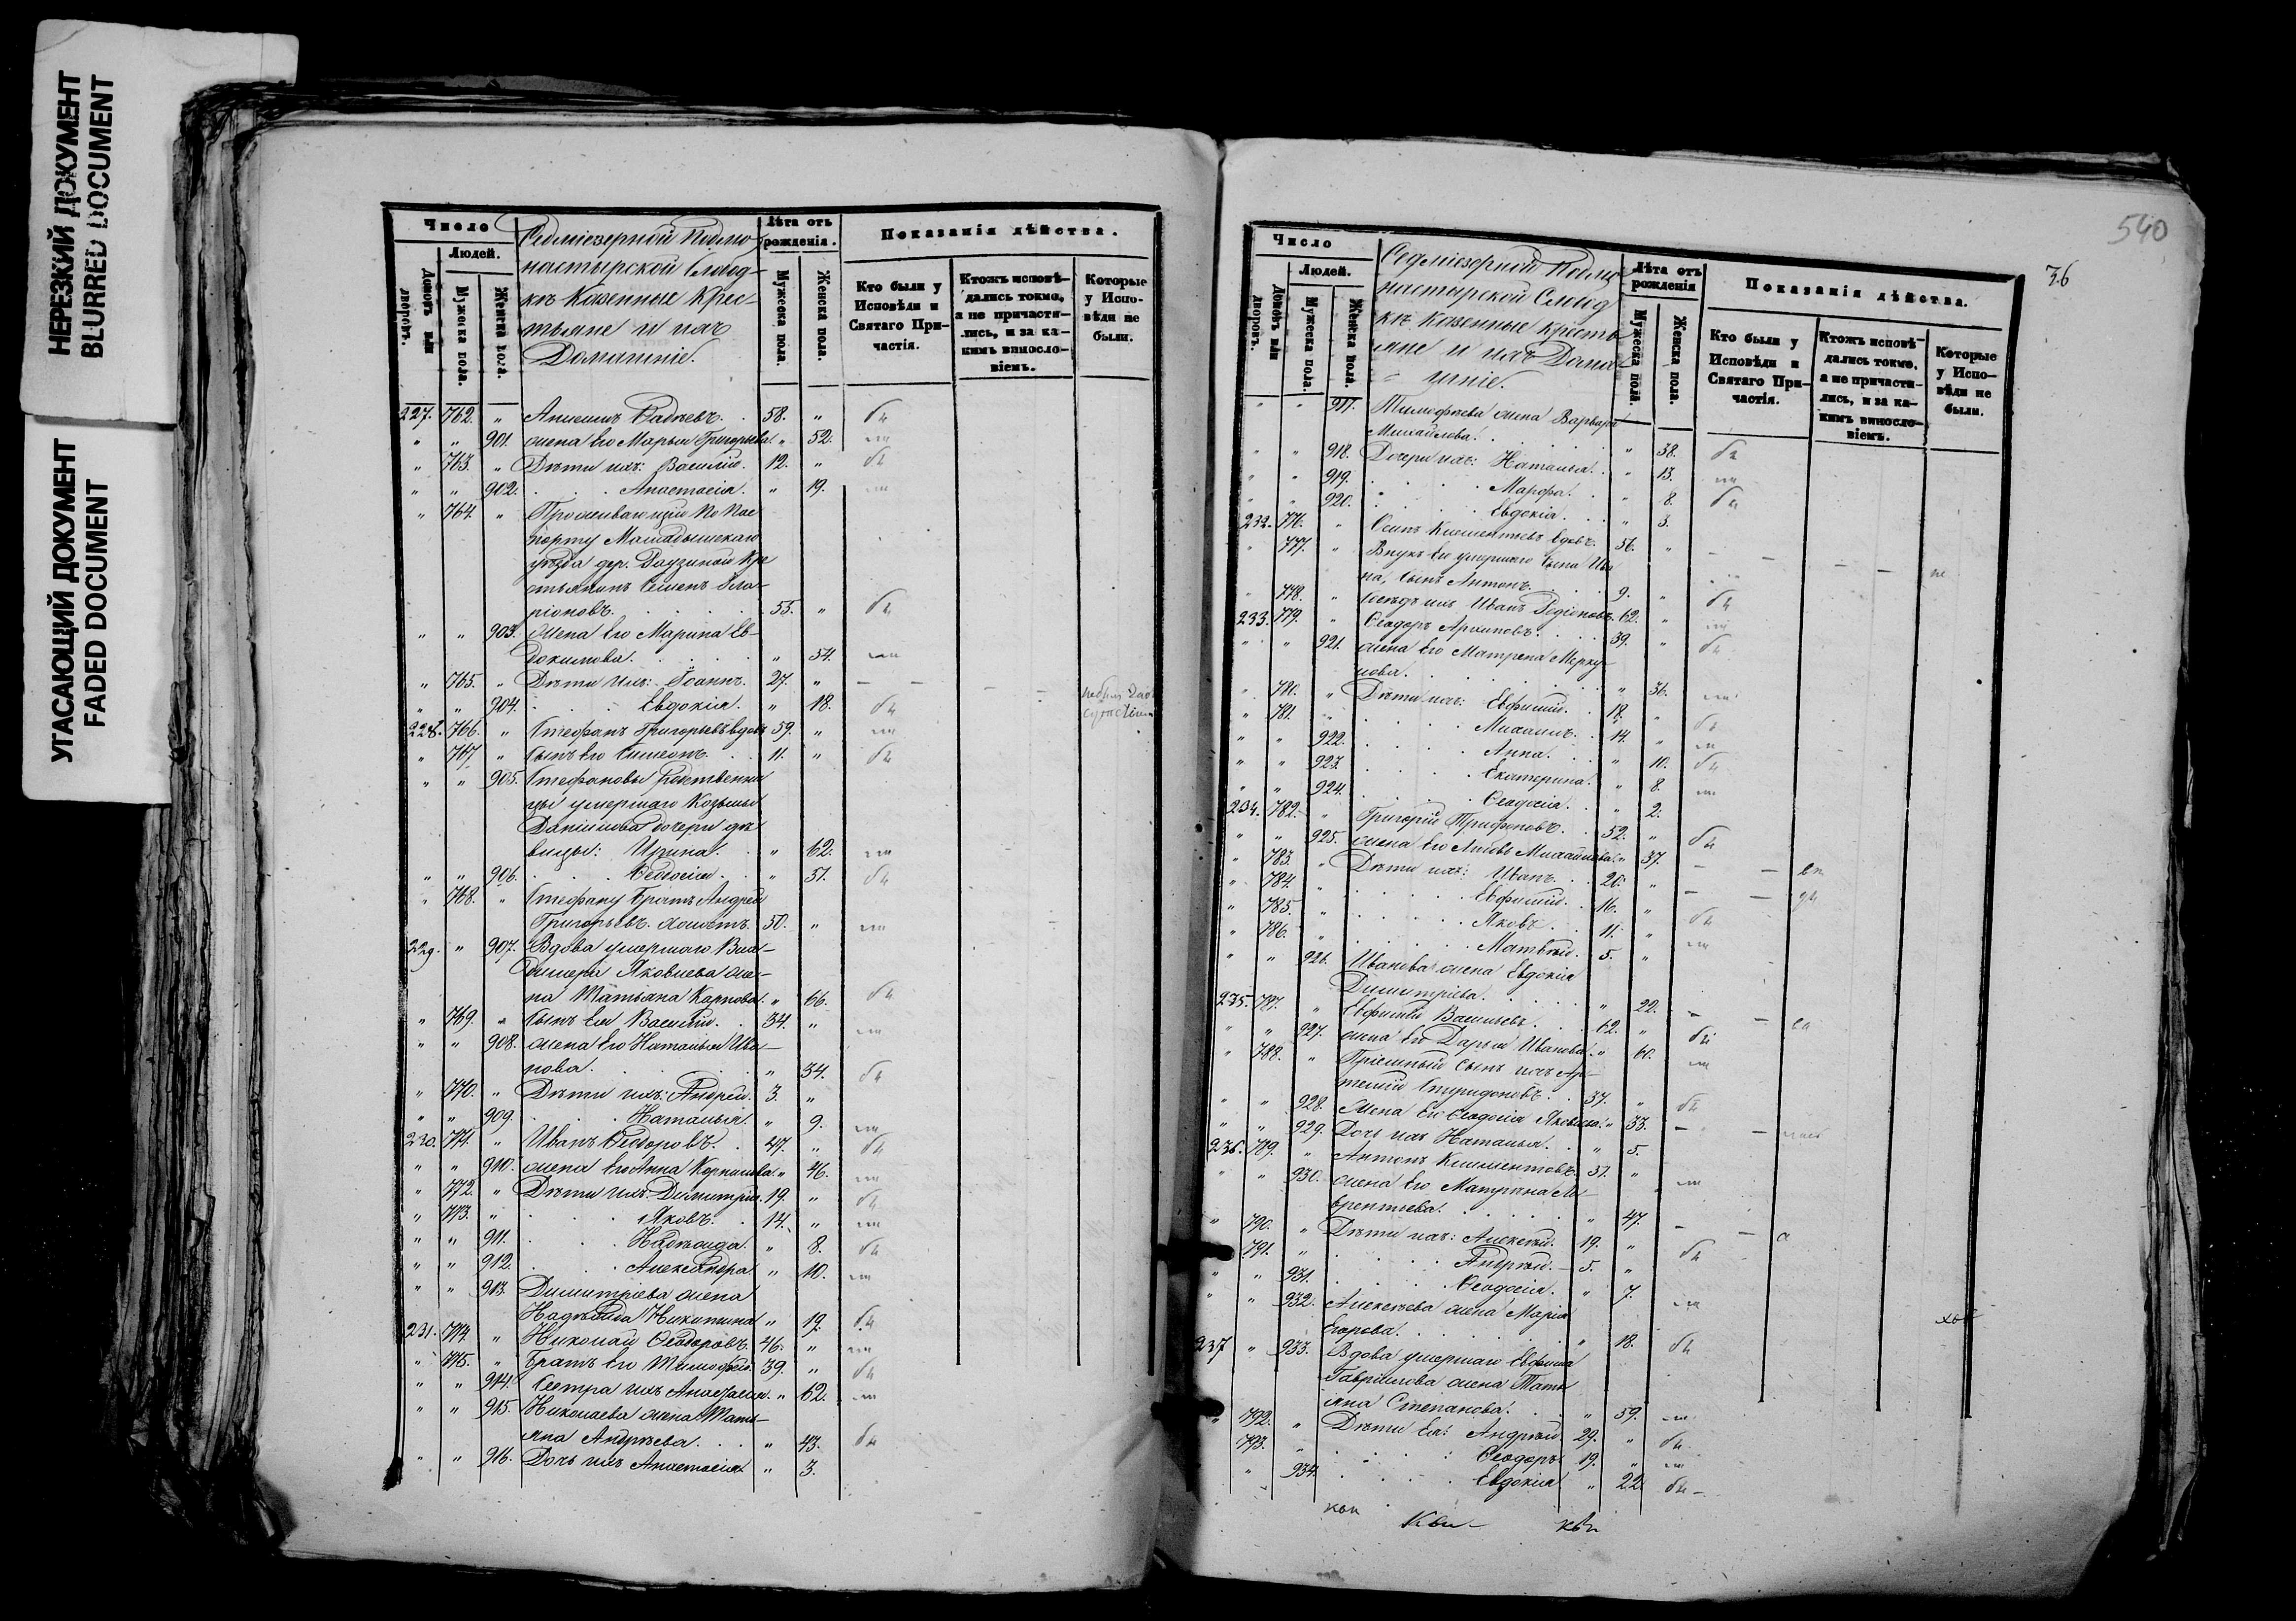 НЕРЕЗКИЙ ДОКУМЕНТ
BLURRED DOCUMENT
УГАСАЮЩИЙ ДОКУМЕНТ
FADED DOCUMENT
Число
Людей.
Домовъ или дворовъ.
Мужеска пола.
Женска пола.
Седміезерной Подмо-
настырской Слобод-
къ Казенные Крес-
тьяне и ихъ
Домашніе.
Лѣта отъ рожденія.
Мужеска пола.
Женска пола.
Показанія дѣйства.
Кто были у Исповѣди и Святаго При-частія.
Ктожъ исповѣ-дались токмо, а не причасти-лись, и за ка-кимъ винословіемъ.
Которые у Испо-вѣди не были.
227. 762. " 58. "
" " 901. жена его Марья Григорьева " 52.
" 763. " Дѣти ихъ: Василій. 12. "
" " 902. Анастасія. " 19.
" 764. " Проживающій по пас
порту Мамадышскаго
уѣзда дер. Даузиной кре
стьянинъ Семенъ Ила-
ріоновъ. 55. "
" " 903. Жена его Марина Ев-
докимова. " 54.
" 765. " Дѣти ихъ: Іоаннъ. 27. "
" " 904. Евдокія. " 18.
228. 766. " Стефанъ Григорьевъ вдовъ 59. "
" 767. " Сынъ его Симеонъ. 11. "
" " 905. Стефановы родственни
цы умершаго Козьмы
Данилова дочери дѣ
вицы: Ирина. " 62.
" " 906. Ѳедосія. " 51.
" 768. " Стефану братъ Андрей
Григорьевъ. холостъ. 50. "
229. " 907. Вдова умершаго Вла-
димера Яковлева же-
на Татьяна Карпова. " 66.
" 769. " Сынъ ея Василій. 34. "
" " 908. жена его Наталья Ива-
нова. " 34.
" 770. " Дѣти ихъ: Андрей. 3. "
" " 909. Наталья. " 9.
230. 771. " Иванъ Ѳедоровъ. 47. "
" " 910. жена его Анна Корнилова " 46.
" 772. " Дѣти ихъ: Димитрій. 19. "
" 773. " Яковъ. 14. "
" " 911. Надежда. " 8.
" " 912. Александра " 10.
" " 913. Димитріева жена
Надежда Никитина " 19.
231. 774. " Николай Ѳеодоровъ. 46. "
" 775. " Братъ его Тимофей. 39. "
" " 914. Сестра ихъ Анастасія. " 62.
" " 915. Николаева жена Тать-
яна Андреева. " 43.
" " 916. Дочь ихъ Анастасія. " 3.
540
36
Число
Людей.
Домовъ или дворовъ.
Мужеска пола.
Женска пола.
Седміезерной Подмо
настырской Слобод
къ Казенные Кресть
яне и ихъ Дома-
шніе.
Лѣта отъ рожденія
Мужеска пола.
Женска пола.
Показанія дѣйства.
Кто были у Исповѣди и Святаго При-частія.
Ктожъ исповѣ-дались токмо, а не причасти-лись, и за ка-кимъ винословіемъ.
Которые у Испо-вѣди не были.
" " 917. Тимофеева жена Варвара
Михайлова. " 38.
" " 918. Дочери ихъ: Наталья. " 13.
" " 919. Марфа. " 8.
" " 920. Евдокія. " 3.
232. 776. " Осипъ Климентьевъ вдовъ. 56. "
" 777. " Внукъ его умершаго сына Ива
на, сынъ Антонъ. 9. "
" 778. " Сосѣдъ ихъ Иванъ Родіоновъ. 62. "
233. 779. " Ѳеодоръ Архиповъ. 39. "
" " 921. жена его Матрена Мерку-
лова. " 36.
" 780. " Дѣти ихъ: Евфимій. 18. "
" 781. " Михаилъ. 14. "
" " 922. Анна. " 10.
" " 923. Екатерина. " 8.
" " 924. Ѳеодосія. " 2.
234. 782. " Григорій Трифоновъ. 52. "
" " 925. жена его Любовь Михайлова. " 37.
" 783. " Дѣти ихъ: Иванъ. 20. "
" 784. " Евфимій. 16. "
" 785. " Яковъ. 11. "
" 786. " Матвѣй. 5. "
" " 926. Иванова жена Евдокія
Димитріева. " 22.
235. 787. " Евфимій Васильевъ. 62. "
" " 927. жена его Дарья Иванова. " 60.
" 788. " Пріемный сынъ ихъ Ар-
темій Спиридоновъ. 37. "
" " 928. Жена его Ѳеодосія Яковлева. " 33.
" " 929. Дочь ихъ Наталья. " 5.
236. 789. " Антонъ Климентовъ. 51. "
" " 930. жена его Матрена Ла-
врентьева. " 47.
" 790. " Дѣти ихъ: Алексѣй. 19. "
" 791. " Андрей. 5. "
" " 931. Ѳеодосія. " 7.
" " 932. Алексѣева жена Марія
Егорова. " 18.
237 " 933. Вдова умершаго Евфима
Гаврилова жена Тать
яна Степанова. " 59.
" 792. " Дѣти ея: Андрей 29. "
793. " Ѳеодоръ 19. "
" 934. Евдокія " 22.